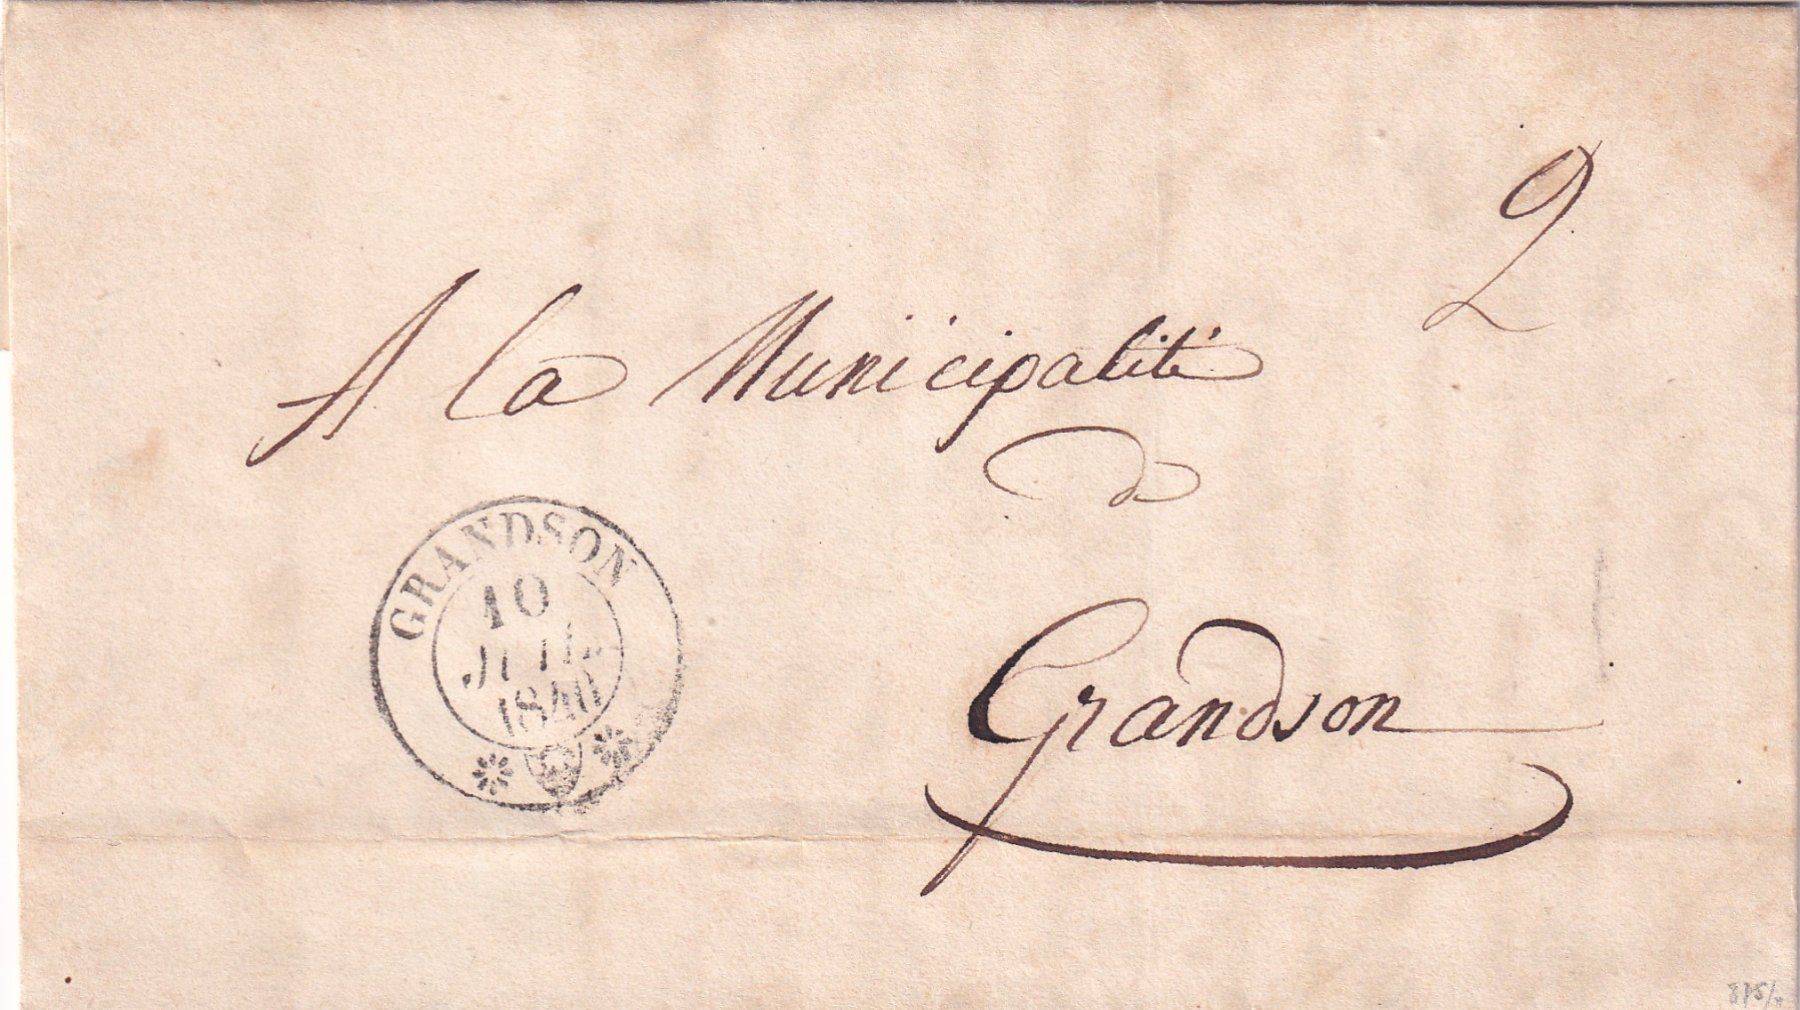 2
A la Municipalité
de
Grandson
GRANDSON
10
JUIL
1840